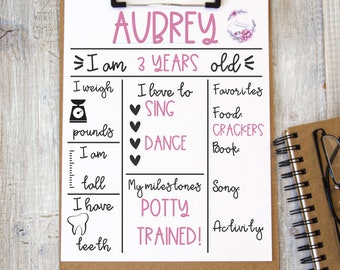 AUBREY
I am 3 YEARS old
I weigh
pounds
I am
tall
I have
teeth
I love to
SING
DANCE
My milestones
POTTY
TRAINED!
Favorites
Food:
CRACKERS
Book:
Song:
Activity: